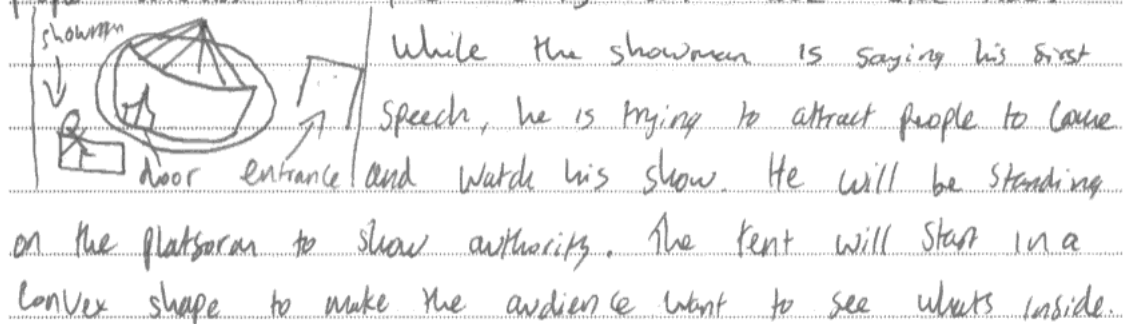 showman
While the showman is saying his first
speech, he is trying to attract people to come
door entrance and watch his show. He will be standing
on the platform to show authority. The tent will start in a
convex shape to make the audience want to see whats inside.